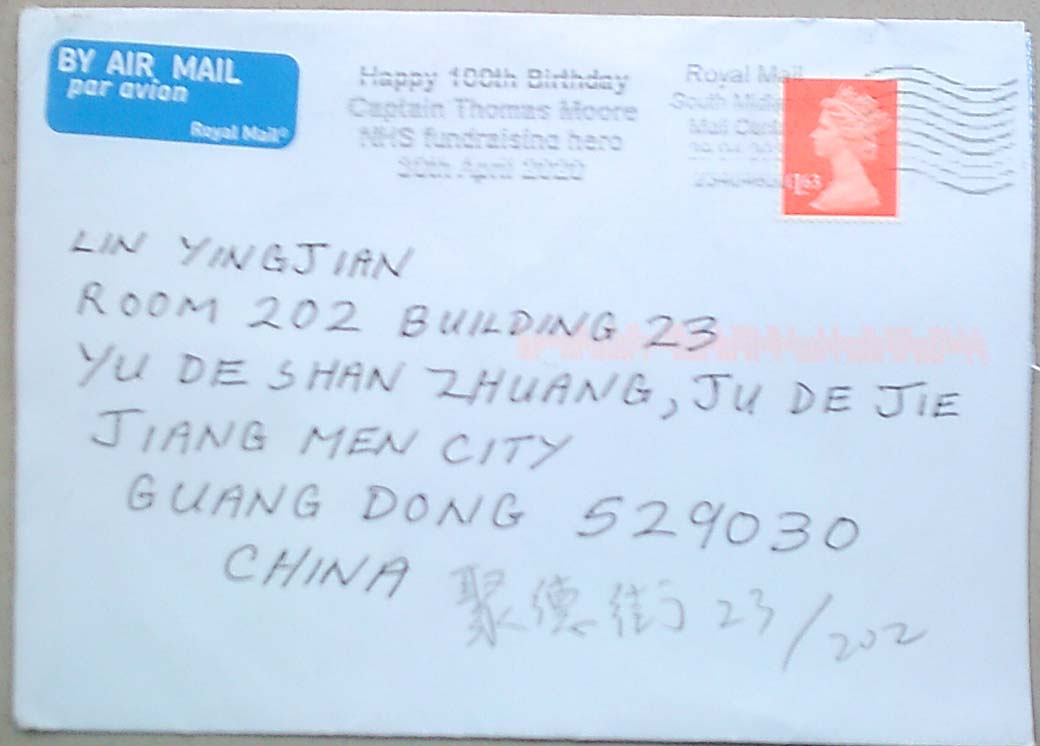 BY AIR MAIL
par avion
Royal Mail®
Happy 100th Birthday
Captain Thomas Moore
NHS fundraising hero
30th April 2020
Royal Mail
South Midla
Mail Cent
£1.63
LIN YINGJIAN
ROOM 202 BUILDING 23
YU DE SHAN ZHUANG, JU DE JIE
JIANG MEN CITY
GUANG DONG 529030
CHINA
聚德街 23/202